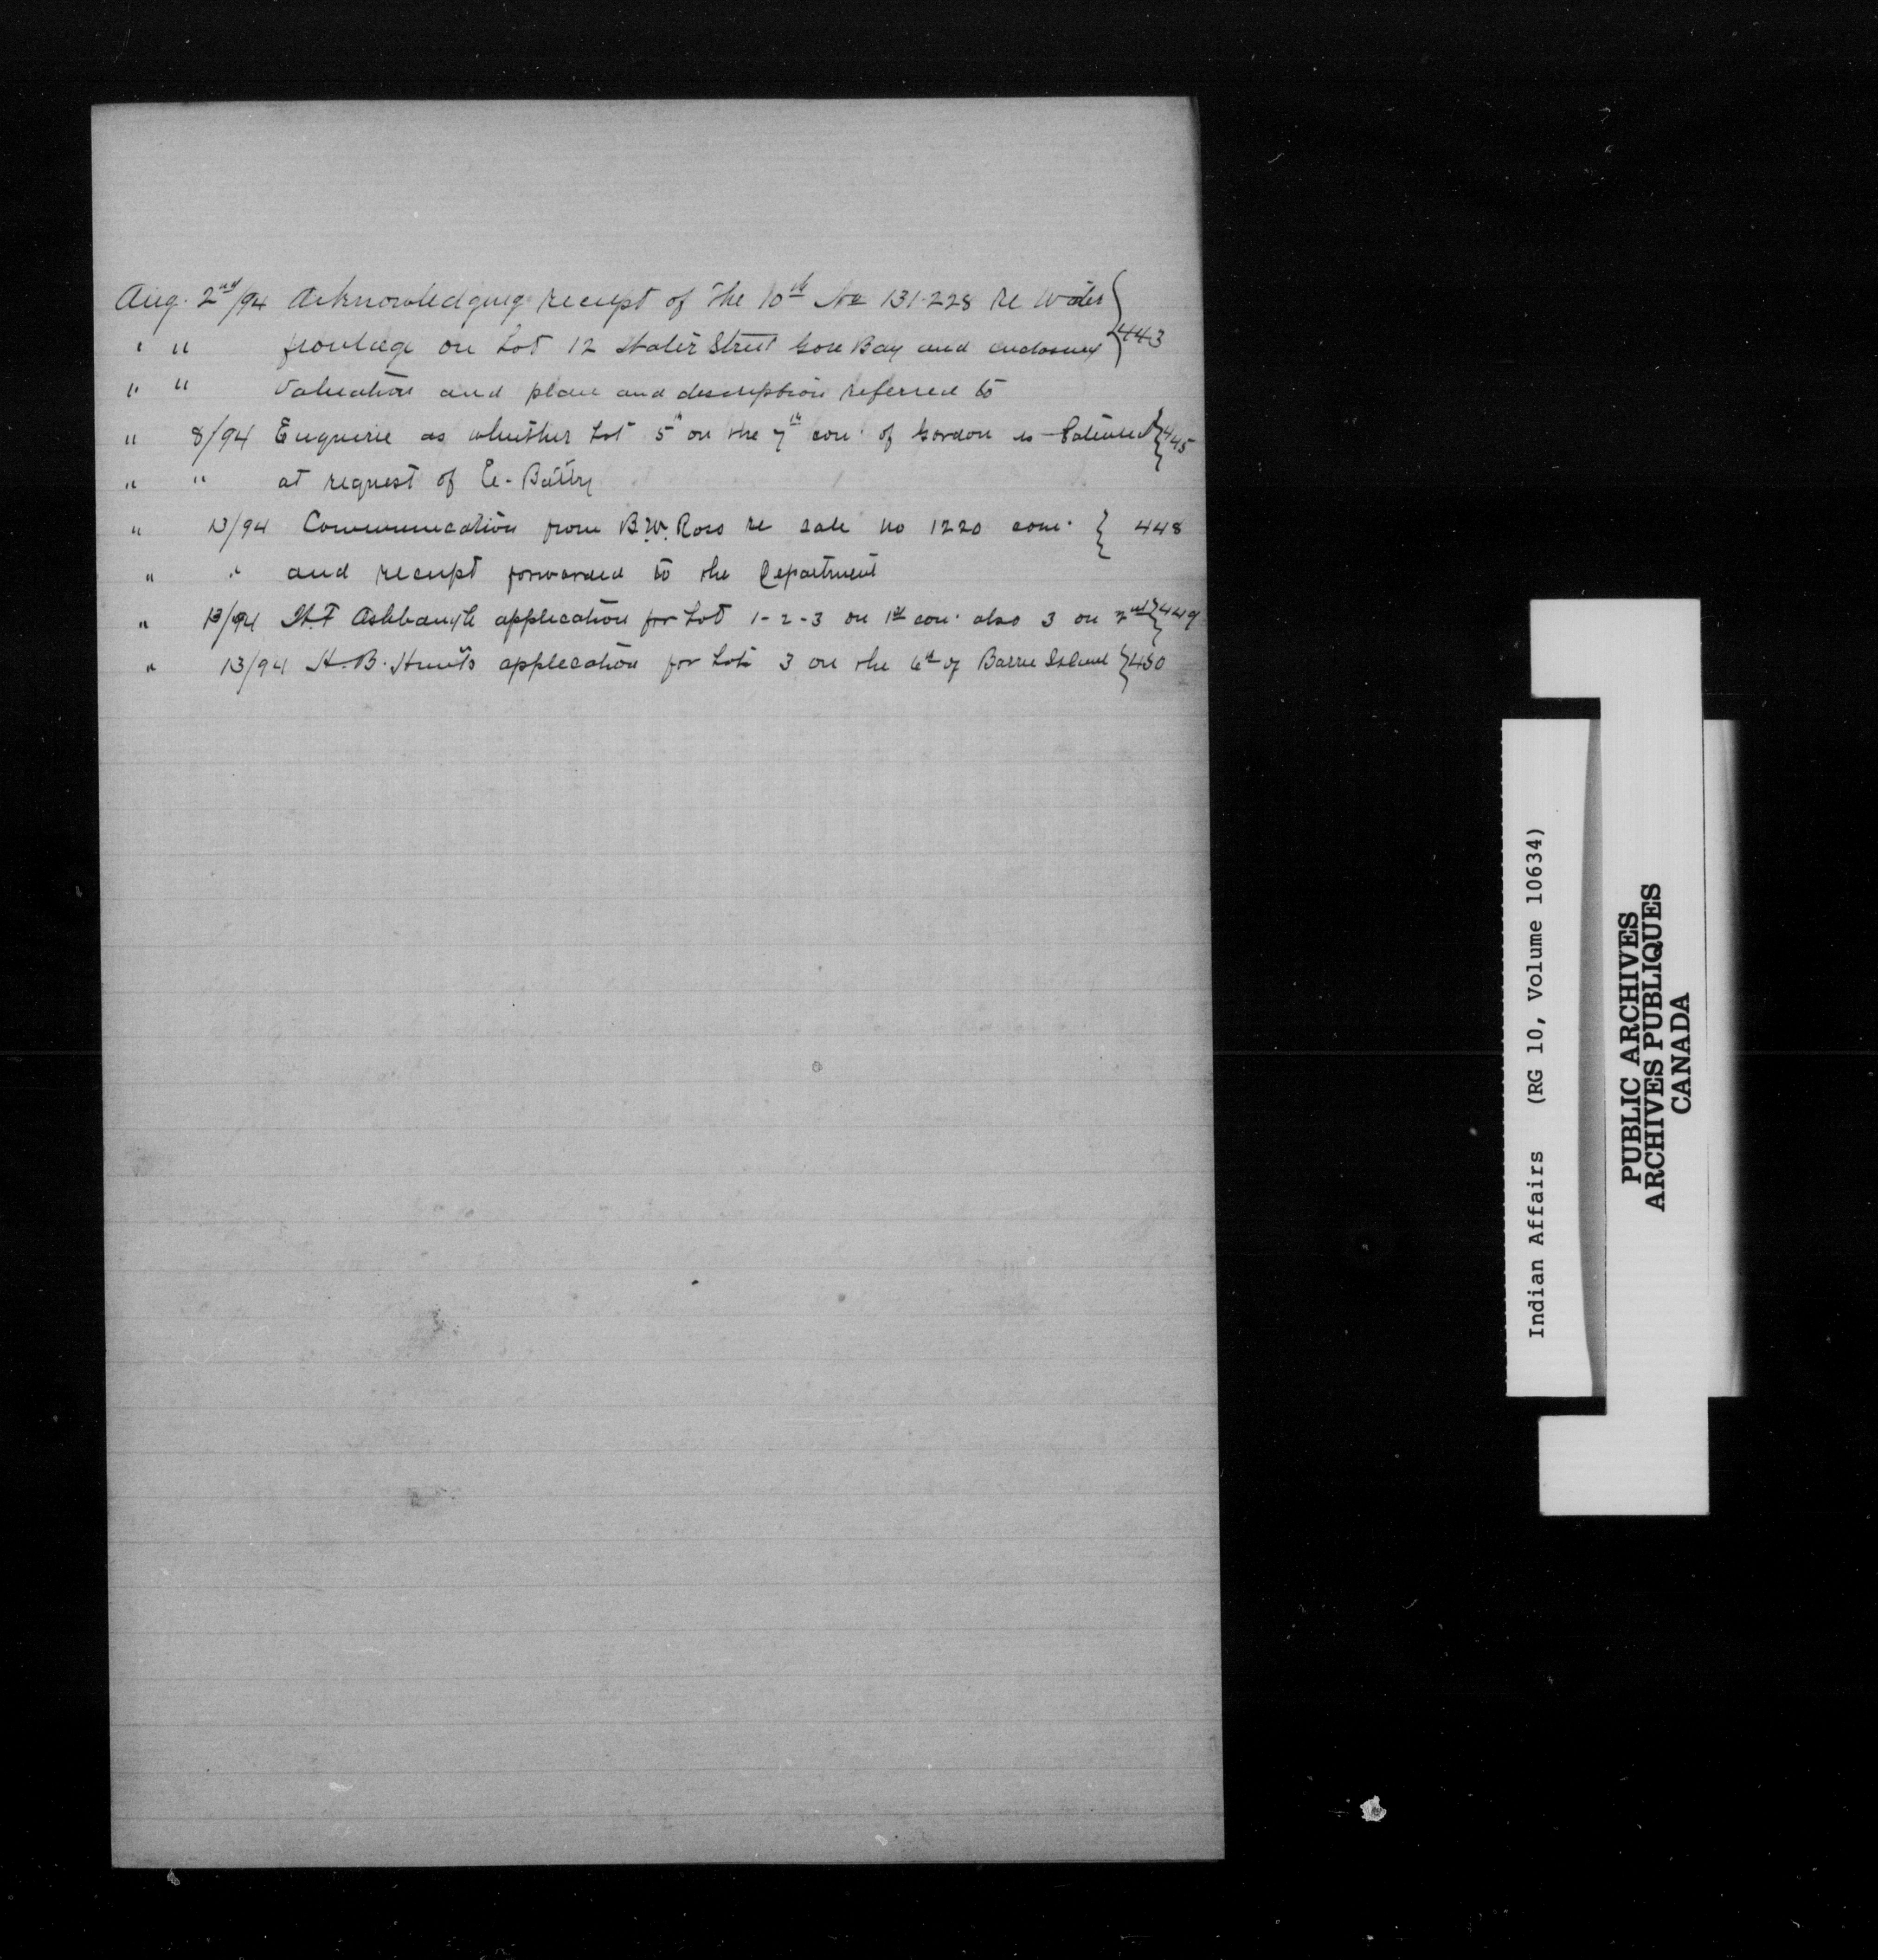 Aug. 2nd/94 Acknowledging receipt of the 10th No 131-228 re Water } 443
" " frontage on Lot 12 Water Street Gore Bay and enclosing
" " Valuation and plan and description referred to
" 8/94 Enquirie as whether Lot 5 on the 7th con. of Gordon is Patented } 445
" " at request of
" 13/94 Communication from B.W. Ross re sale no 1220 con. } 448
" " and receipt forwarded to the Department
" 13/94 Ashbaugh application for Lot 1-2-3 on 1st con. also 3 on 2nd } 449
" 13/94 H.B. Hunts application for Lot 3 on the 6th of Barrie Island } 450
Indian Affairs (RG 10, Volume 10634)
PUBLIC ARCHIVES
ARCHIVES PUBLIQUES
CANADA